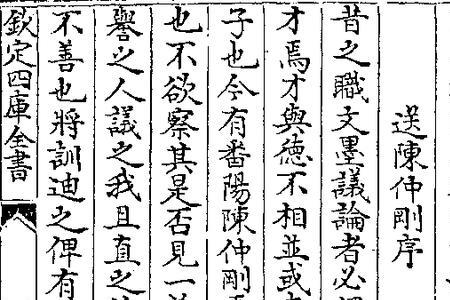 送陳仲剛序
昔之職文墨議論者必
才焉才與德不相並或
子也今有番陽陳仲剛
也不欲察其是否見一
譽之人議之我且直之
不善也將訓迪之俾有
欽定四庫全書